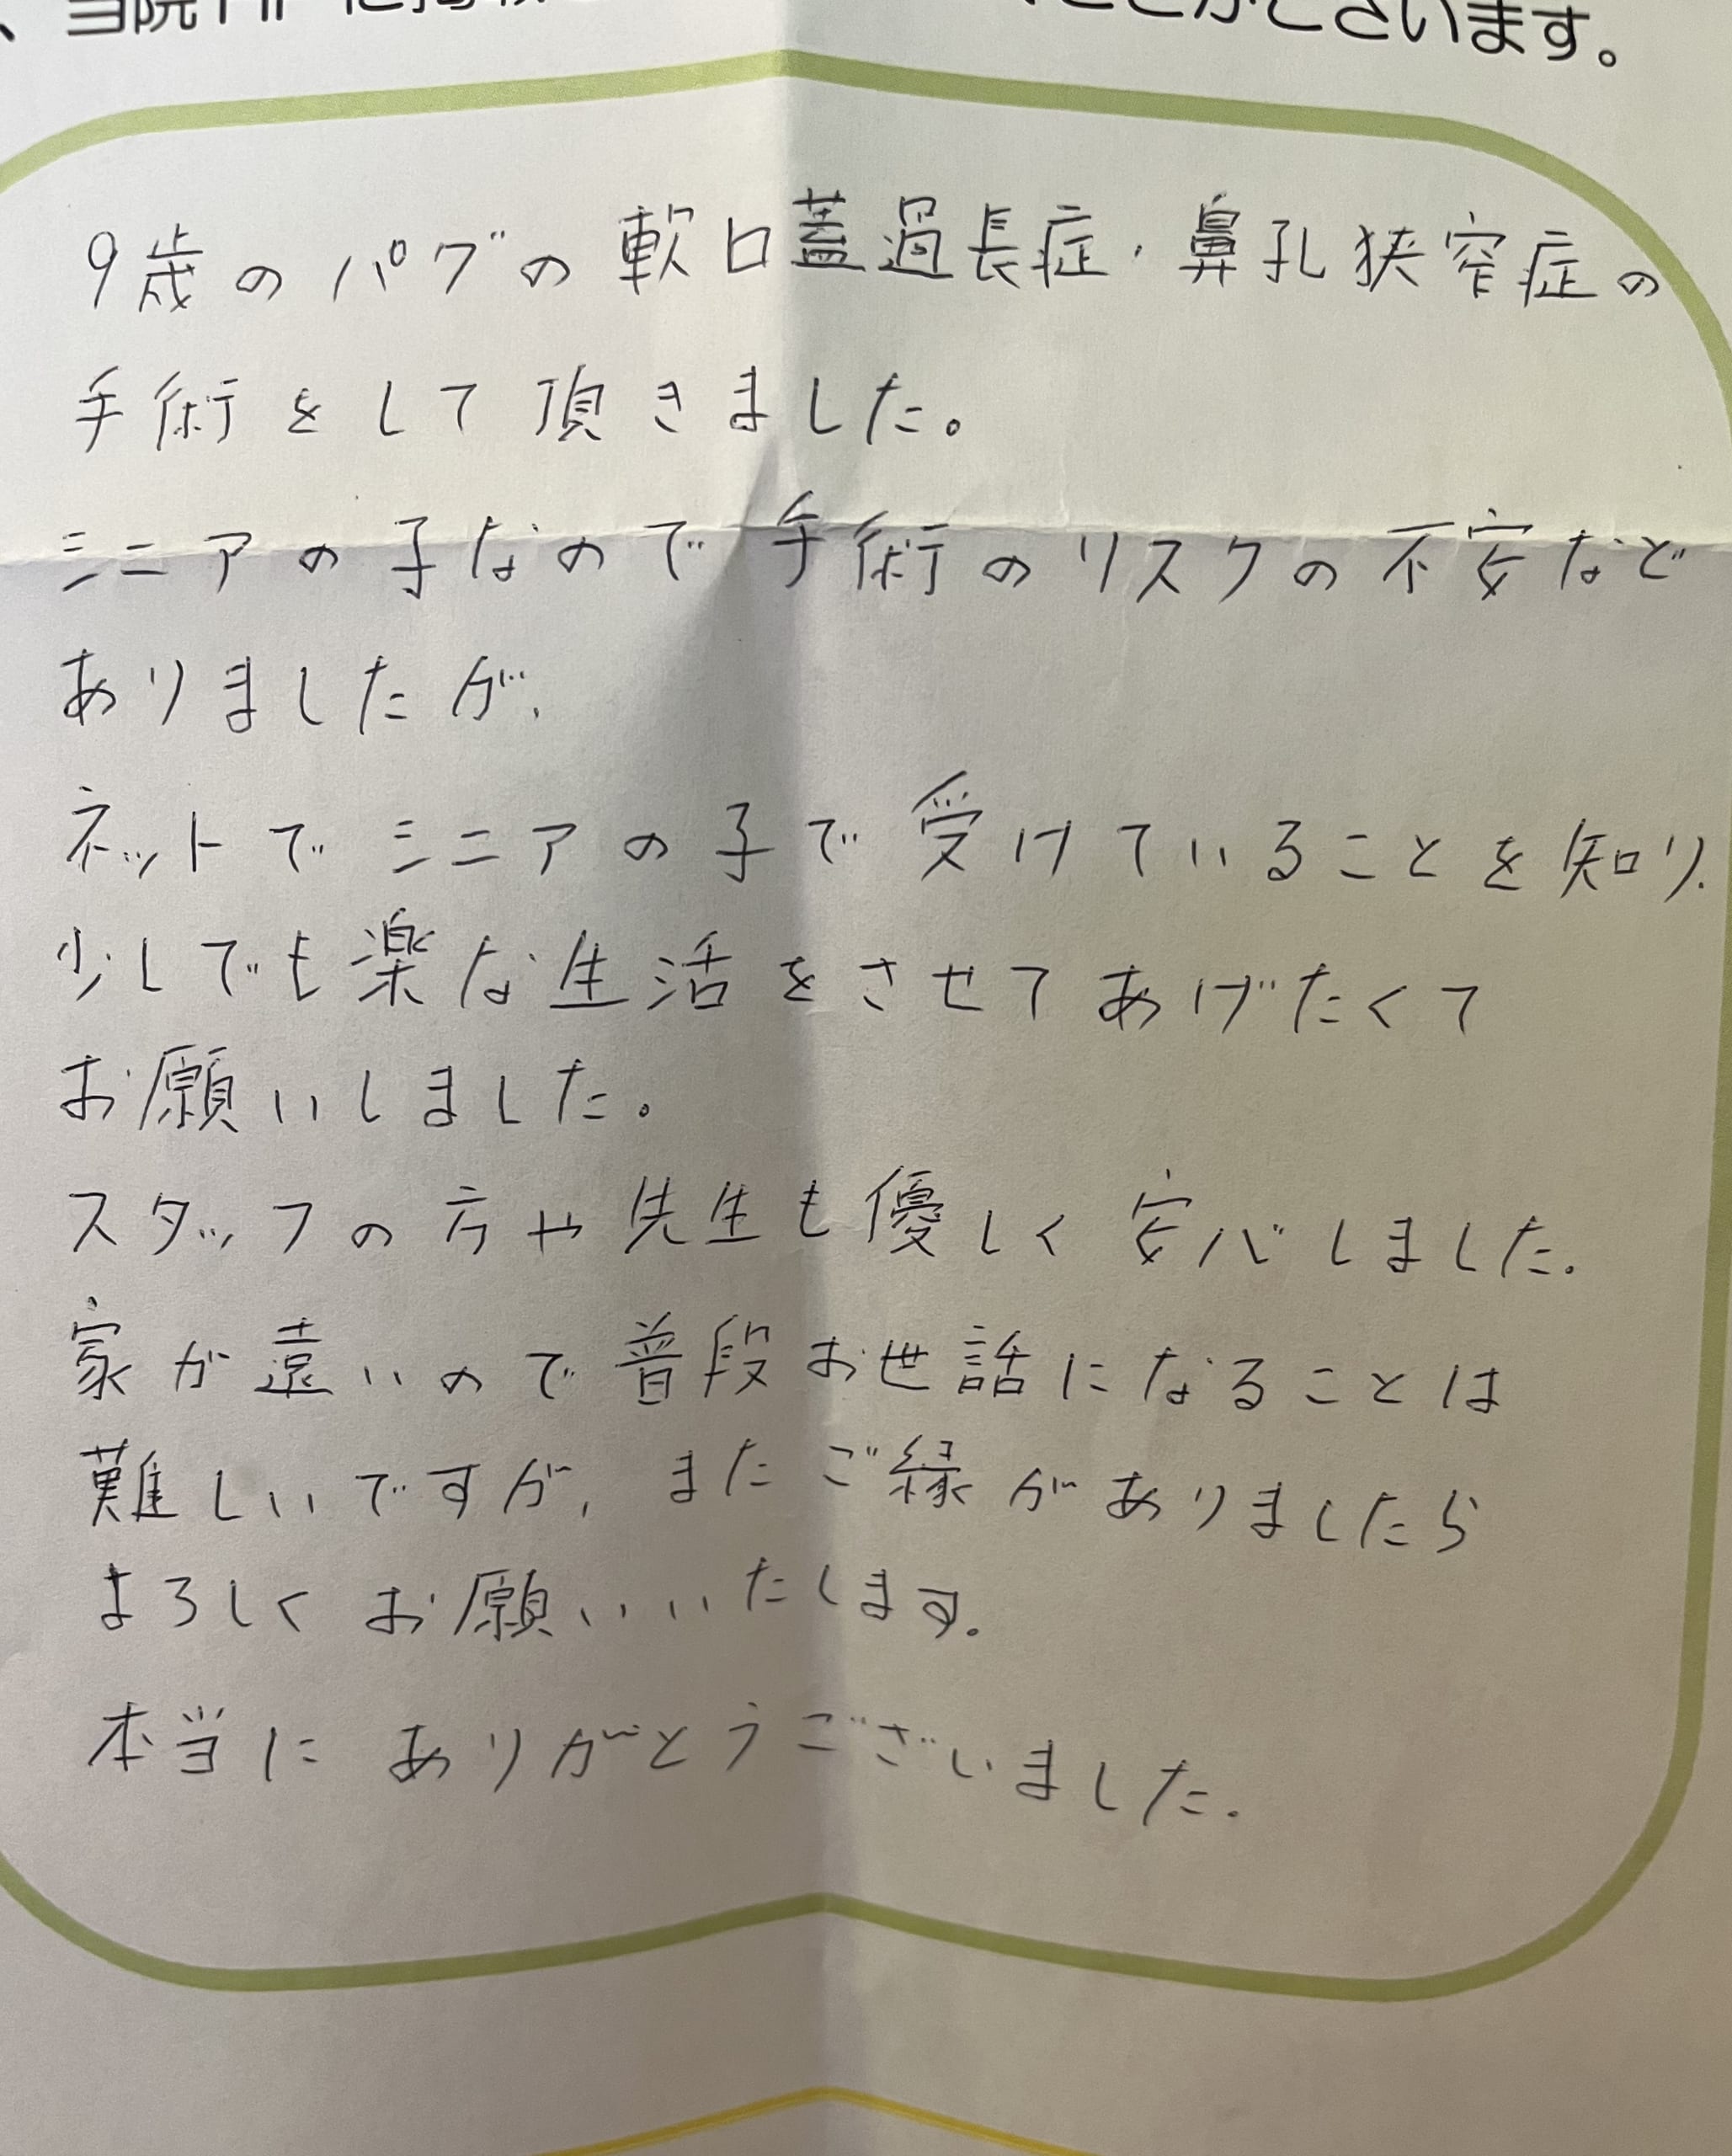 、当院HPに掲
ことがございます。
9歳のパグの軟口蓋過長症・鼻孔狭窄症の
手術をして頂きました。
シニアの子なので手術のリスクの不安など
ありましたが、
ネットでシニアの子で受けていることを知り、
少しでも楽な生活をさせてあげたくて
お願いしました。
スタッフの方や先生も優しく安心しました。
家が遠いので普段お世話になることは
難しいですが、またご縁がありましたら
よろしくお願いいたします。
本当にありがとうございました。